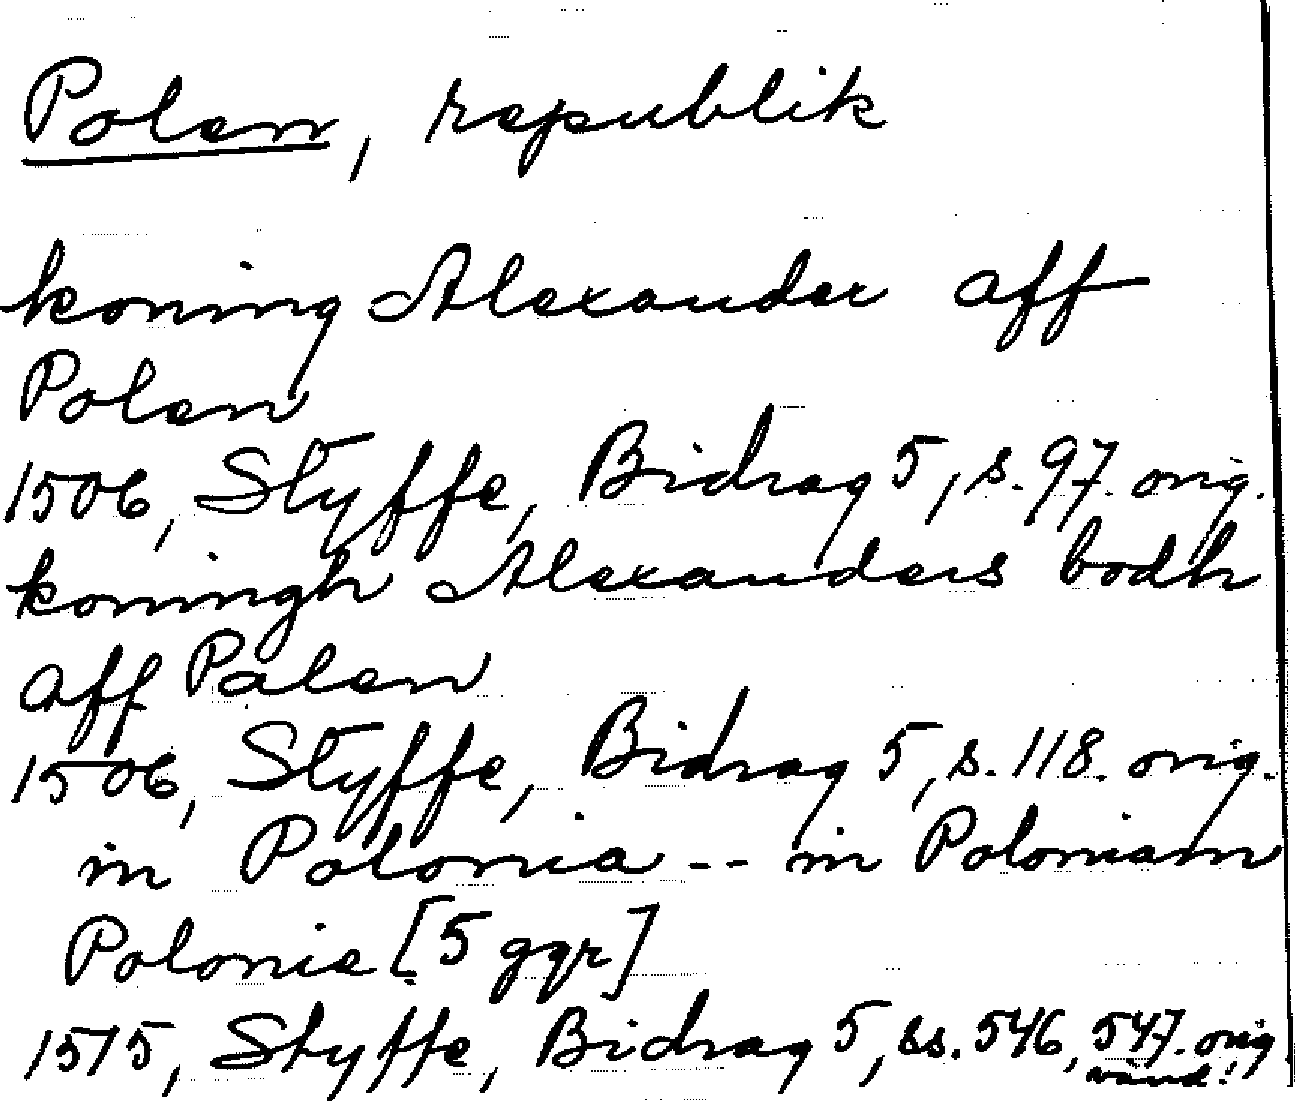 Polen, republik
koning Alexander aff
Polen
1506, Styffe, Bidrag 5, s. 97. orig.
koningh Alexanders bodh
aff Palen
1506, Styffe, Bidrag 5, s. 118. orig.
in Polonia -- in Poloniam
Polonie [5 ggr]
1515, Styffe, Bidrag 5, ss. 546, 547. orig
vänd!